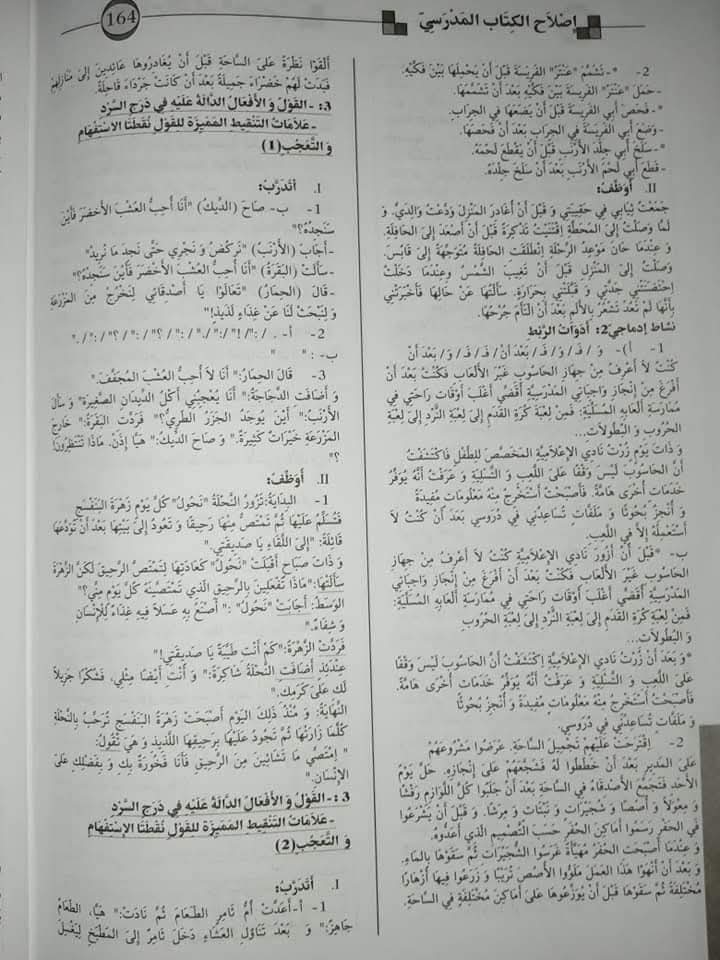 إصْلاَح الكِتَاب المَدْرَسِيّ
164
2- *- تَشَمَّمَ "عَنْتَرُ" الفَرِيسَةَ قَبْلَ أَنْ يَحْمِلَهَا بَيْنَ فَكَّيْهِ.
-حَمَلَ "عَنْتَرُ" الفَرِيسَةَ بَيْنَ فَكَّيْهِ بَعْدَ أَنْ تَشَمَّمَهَا.
*- فَحَصَ أَبِي الفَرِيسَةَ قَبْلَ أَنْ يَضَعَهَا فِي الجِرَابِ.
-وَضَعَ أَبِي الفَرِيسَةَ فِي الجِرَابِ بَعْدَ أَنْ فَحَصَهَا.
*- سَلَخَ أَبِي جِلْدَ الأَرْنَبِ قَبْلَ أَنْ يَقْطَعَ لَحْمَهُ.
-قَطَعَ أَبِي لَحْمَ الأَرْنَبِ بَعْدَ أَنْ سَلَخَ جِلْدَهُ.
II. أُوَظِّفُ:
جَمَعْتُ ثِيَابِي فِي حَقِيبَتِي وَ قَبْلَ أَنْ أُغَادِرَ المَنْزِلَ وَدَّعْتُ وَالِدَيَّ. وَ
لَمَّا وَصَلْتُ إِلَى المَحَطَّةِ اِقْتَنَيْتُ تَذْكِرَةً قَبْلَ أَنْ أَصْعَدَ إِلَى الحَافِلَةِ.
وَ عِنْدَمَا حَانَ مَوْعِدُ الرِّحْلَةِ اِنْطَلَقَتِ الحَافِلَةُ مُتَوَجِّهَةً إِلَى قَابِسَ.
وَصَلْتُ إِلَى المَنْزِلِ قَبْلَ أَنْ تَغِيبَ الشَّمْسُ وعِنْدَمَا دَخَلْتُ
اِحْتَضَنَتْنِي جَدَّتِي وَ قَبَّلَتْنِي بِحَرَارَةٍ. سَأَلْتُهَا عَنْ حَالِهَا فَأَخْبَرَتْنِي
بِأَنَّهَا لَمْ تَعُدْ تَشْعُرُ بِالأَلَمِ بَعْدَ أَنْ اِلْتَأَمَ جُرْحُهَا.
نشاط إدماجي2: أَدَوَاتُ الرَّبْطِ
1- أ)- وَ / فَـ/وَ/ فَـ / بَعْدَ أَنْ/ فَـ / فَـ / وَ/ بَعْدَ أَنْ
كُنْتُ لاَ أَعْرِفُ مِنْ جِهَازِ الحَاسُوبِ غَيْرَ الأَلْعَابِ فَكُنْتُ بَعْدَ أَنْ
أَفْرَغَ مِنْ إِنْجَازِ وَاجِبَاتِي المَدْرَسِيَّةِ أَقْضِي أَغْلَبَ أَوْقَاتِ رَاحَتِي فِي
مُمَارَسَةِ أَلْعَابِهِ المُسَلِّيَةِ: فَمِنْ لِعْبَةِ كُرَةِ القَدَمِ إِلَى لِعْبَةِ النَّرْدِ إِلَى لِعْبَةِ
الحُرُوبِ وَ البُطُولاَتِ...
وَ ذَاتَ يَوْمٍ زُرْتُ نَادِي الإِعْلاَمِيَّةِ المُخَصَّصَ لِلطِّفْلِ فَاكْتَشَفْتُ
أَنَّ الحَاسُوبَ لَيْسَ وَقْفًا عَلَى اللَّعِبِ وَ التَّسْلِيَةِ وَ عَرَفْتُ أَنَّهُ يُوَفِّرُ
خَدَمَاتٍ أُخْرَى هَامَّةً. فَأَصْبَحْتُ أَسْتَخْرِجُ مِنْهُ مَعْلُومَاتٍ مُفِيدَةً
وَ أُنْجِزُ بُحُوثًا وَ مَلَفَّاتٍ تُسَاعِدُنِي فِي دُرُوسِي بَعْدَ أَنْ كُنْتُ لاَ
أَسْتَعْمِلُهُ إِلاَّ فِي اللَّعِبِ.
ب- *قَبْلَ أَنْ أَزُورَ نَادِي الإِعْلاَمِيَّةِ كُنْتُ لاَ أَعْرِفُ مِنْ جِهَازِ
الحَاسُوبِ غَيْرَ الأَلْعَابِ فَكُنْتُ بَعْدَ أَنْ أَفْرَغَ مِنْ إِنْجَازِ وَاجِبَاتِي
المَدْرَسِيَّةِ أَقْضِي أَغْلَبَ أَوْقَاتِ رَاحَتِي فِي مُمَارَسَةِ أَلْعَابِهِ المُسَلِّيَةِ:
فَمِنْ لِعْبَةِ كُرَةِ القَدَمِ إِلَى لِعْبَةِ النَّرْدِ إِلَى لِعْبَةِ الحُرُوبِ
وَ البُطُولاَتِ...
*وَ بَعْدَ أَنْ زُرْتُ نَادِي الإِعْلاَمِيَّةِ اِكْتَشَفْتُ أَنَّ الحَاسُوبَ لَيْسَ وَقْفًا
عَلَى اللَّعِبِ وَ التَّسْلِيَةِ وَ عَرَفْتُ أَنَّهُ يُوَفِّرُ خَدَمَاتٍ أُخْرَى هَامَّةً.
فَأَصْبَحْتُ أَسْتَخْرِجُ مِنْهُ مَعْلُومَاتٍ مُفِيدَةً وَ أُنْجِزُ بُحُوثًا
وَ مَلَفَّاتٍ تُسَاعِدُنِي فِي دُرُوسِي.
2- اِقْتَرَحَتْ عَلَيْهِمْ تَجْمِيلَ السَّاحَةِ. عَرَضُوا مَشْرُوعَهُمْ
عَلَى المُدِيرِ بَعْدَ أَنْ خَطَّطُوا لَهُ فَشَجَّعَهُمْ عَلَى إِنْجَازِهِ. حَلَّ يَوْمُ
الأَحَدِ فَتَجَمَّعَ الأَصْدِقَاءُ فِي السَّاحَةِ بَعْدَ أَنْ جَلَبُوا كُلَّ اللَّوَازِمِ رَفْشًا
وَ مِعْوَلاً وَ أُصُصًا وَ شُجَيْرَاتٍ وَ نَبْتَاتٍ وَ مِرَشًّا. وَ قَبْلَ أَنْ يَشْرَعُوا
فِي الحَفْرِ رَسَمُوا أَمَاكِنَ الحُفَرِ حَسَبَ التَّصْمِيمِ الَّذِي أَعَدُّوهُ.
وَ عِنْدَمَا أَصْبَحَتِ الحُفَرُ مُهَيَّأَةً غَرَسُوا الشُّجَيْرَاتِ ثُمَّ سَقَوْهَا بِالمَاءِ.
وَ بَعْدَ أَنْ أَنْهَوْا هَذَا العَمَلَ مَلَؤُوا الأُصُصَ تُرَابًا وَ زَرَعُوا فِيهَا أَزْهَارًا
مُخْتَلِفَةً ثُمَّ سَقَوْهَا قَبْلَ أَنْ يُوَزِّعُوهَا عَلَى أَمَاكِنَ مُخْتَلِفَةٍ فِي السَّاحَةِ.
أَلْقَوْا نَظْرَةً عَلَى السَّاحَةِ قَبْلَ أَنْ يُغَادِرُوهَا عَائِدِينَ إِلَى مَنَازِلِهِمْ
فَبَدَتْ لَهُمْ خَضْرَاءَ جَمِيلَةً بَعْدَ أَنْ كَانَتْ جَرْدَاءَ قَاحِلَةً.
3: - القَوْلُ وَ الأَفْعَالُ الدَّالَّةُ عَلَيْهِ فِي دَرَجِ السَّرْدِ
- عَلاَمَاتُ التَّنْقِيطِ المُمَيِّزَةُ لِلقَوْلِ نُقْطَتَا الاِسْتِفْهَامِ
وَ التَّعَجُّبِ(1)
I. أَتَدَرَّبُ:
1- ب- صَاحَ (الدِّيكُ) "أَنَا أُحِبُّ العُشْبَ الأَخْضَرَ فَأَيْنَ
سَنَجِدُهُ؟"
-أَجَابَ (الأَرْنَبُ) "نَرْكُضُ وَ نَجْرِي حَتَّى نَجِدَ مَا نُرِيدُ"
-سَأَلَتْ (البَقَرَةُ):" أَنَا أُحِبُّ العُشْبَ الأَخْضَرَ فَأَيْنَ سَنَجِدُهُ؟"
-قَالَ (الحِمَارُ) "تَعَالَوْا يَا أَصْدِقَائِي لِنَخْرُجَ مِنَ المَزْرَعَةِ
وَ لِنَبْحَثَ لَنَا عَنْ غِذَاءٍ لَذِيذٍ!"
2- أ- . / :"/ !"/ :"/ ."/ :"/ ؟"/ :"/ ؟"/ :"/ ."
ب- : " "
3- قَالَ الحِمَارُ:" أَنَا لاَ أُحِبُّ العُشْبَ المُجَفَّفَ."
وَ أَضَافَتِ الدَّجَاجَةُ:" أَنَا يُعْجِبُنِي أَكْلُ الدِّيدَانِ الصَّغِيرَةِ" وَ سَأَلَ
الأَرْنَبُ:" أَيْنَ يُوجَدُ الجَزَرُ الطَّرِيُّ؟" فَرَدَّتِ البَقَرَةُ:" خَارِجَ
المَزْرَعَةِ خَيْرَاتٌ كَثِيرَةٌ." وَ صَاحَ الدِّيكُ:" هَيَّا إِذَنْ. مَاذَا تَنْتَظِرُونَ!
؟"
II. أُوَظِّفُ:
1- البِدَايَةُ:تَزُورُ النَّحْلَةُ "نَحُولُ" كُلَّ يَوْمٍ زَهْرَةَ البَنَفْسَجِ
فَتُسَلِّمُ عَلَيْهَا ثُمَّ تَمْتَصُّ مِنْهَا رَحِيقًا وَ تَعُودُ إِلَى بَيْتِهَا بَعْدَ أَنْ تُوَدِّعَهَا
قَائِلَةً: "إِلَى اللِّقَاءِ يَا صَدِيقَتِي."
وَ ذَاتَ صَبَاحٍ أَقْبَلَتْ "نَحُولُ" كَعَادَتِهَا لِتَمْتَصَّ الرَّحِيقَ لَكِنَّ الزَّهْرَةَ
سَأَلَتْهَا:"مَاذَا تَفْعَلِينَ بِالرَّحِيقِ الَّذِي تَمْتَصِّينَهُ كُلَّ يَوْمٍ مِنِّي؟"
الوَسَطُ: أَجَابَتْ "نَحُولُ" :" أَصْنَعُ بِهِ عَسَلاً فِيهِ غِذَاءٌ لِلإِنْسَانِ
وَ شِفَاءٌ."
فَرَدَّتْ الزَّهْرَةُ:"كَمْ أَنْتِ طَيِّبَةٌ يَا صَدِيقَتِي!"
عِنْدَئِذٍ أَضَافَتِ النَّحْلَةُ شَاكِرَةً:" وَ أَنْتِ أَيْضًا مِثْلِي، فَشُكْرًا جَزِيلاً
لَكِ عَلَى كَرَمِكِ."
النِّهَايَةُ: وَ مُنْذُ ذَلِكَ اليَوْمِ أَصْبَحَتْ زَهْرَةُ البَنَفْسَجِ تُرَحِّبُ بِالنَّحْلَةِ
كُلَّمَا زَارَتْهَا ثُمَّ تَجُودُ عَلَيْهَا بِرَحِيقِهَا اللَّذِيذِ وَ هِيَ تَقُولُ:
" اِمْتَصِّي مَا تَشَائِينَ مِنَ الرَّحِيقِ فَأَنَا فَخُورَةٌ بِكِ وَ بِفَضْلِكِ عَلَى
الإِنْسَانِ."
3 :- القَوْلُ وَ الأَفْعَالُ الدَّالَّةُ عَلَيْهِ فِي دَرَجِ السَّرْدِ
- عَلاَمَاتُ التَّنْقِيطِ المُمَيِّزَةُ لِلقَوْلِ نُقْطَتَا الاِسْتِفْهَامِ
وَ التَّعَجُّبِ(2)
I. أَتَدَرَّبُ:
1- أ-أَعَدَّتْ أُمُّ ثَامِرٍ الطَّعَامَ ثُمَّ نَادَتْ:" هَيَّا، الطَّعَامُ
جَاهِزٌ:" وَ بَعْدَ تَنَاوُلِ العَشَاءِ دَخَلَ ثَامِرٌ إِلَى المَطْبَخِ لِيَغْسِلَ